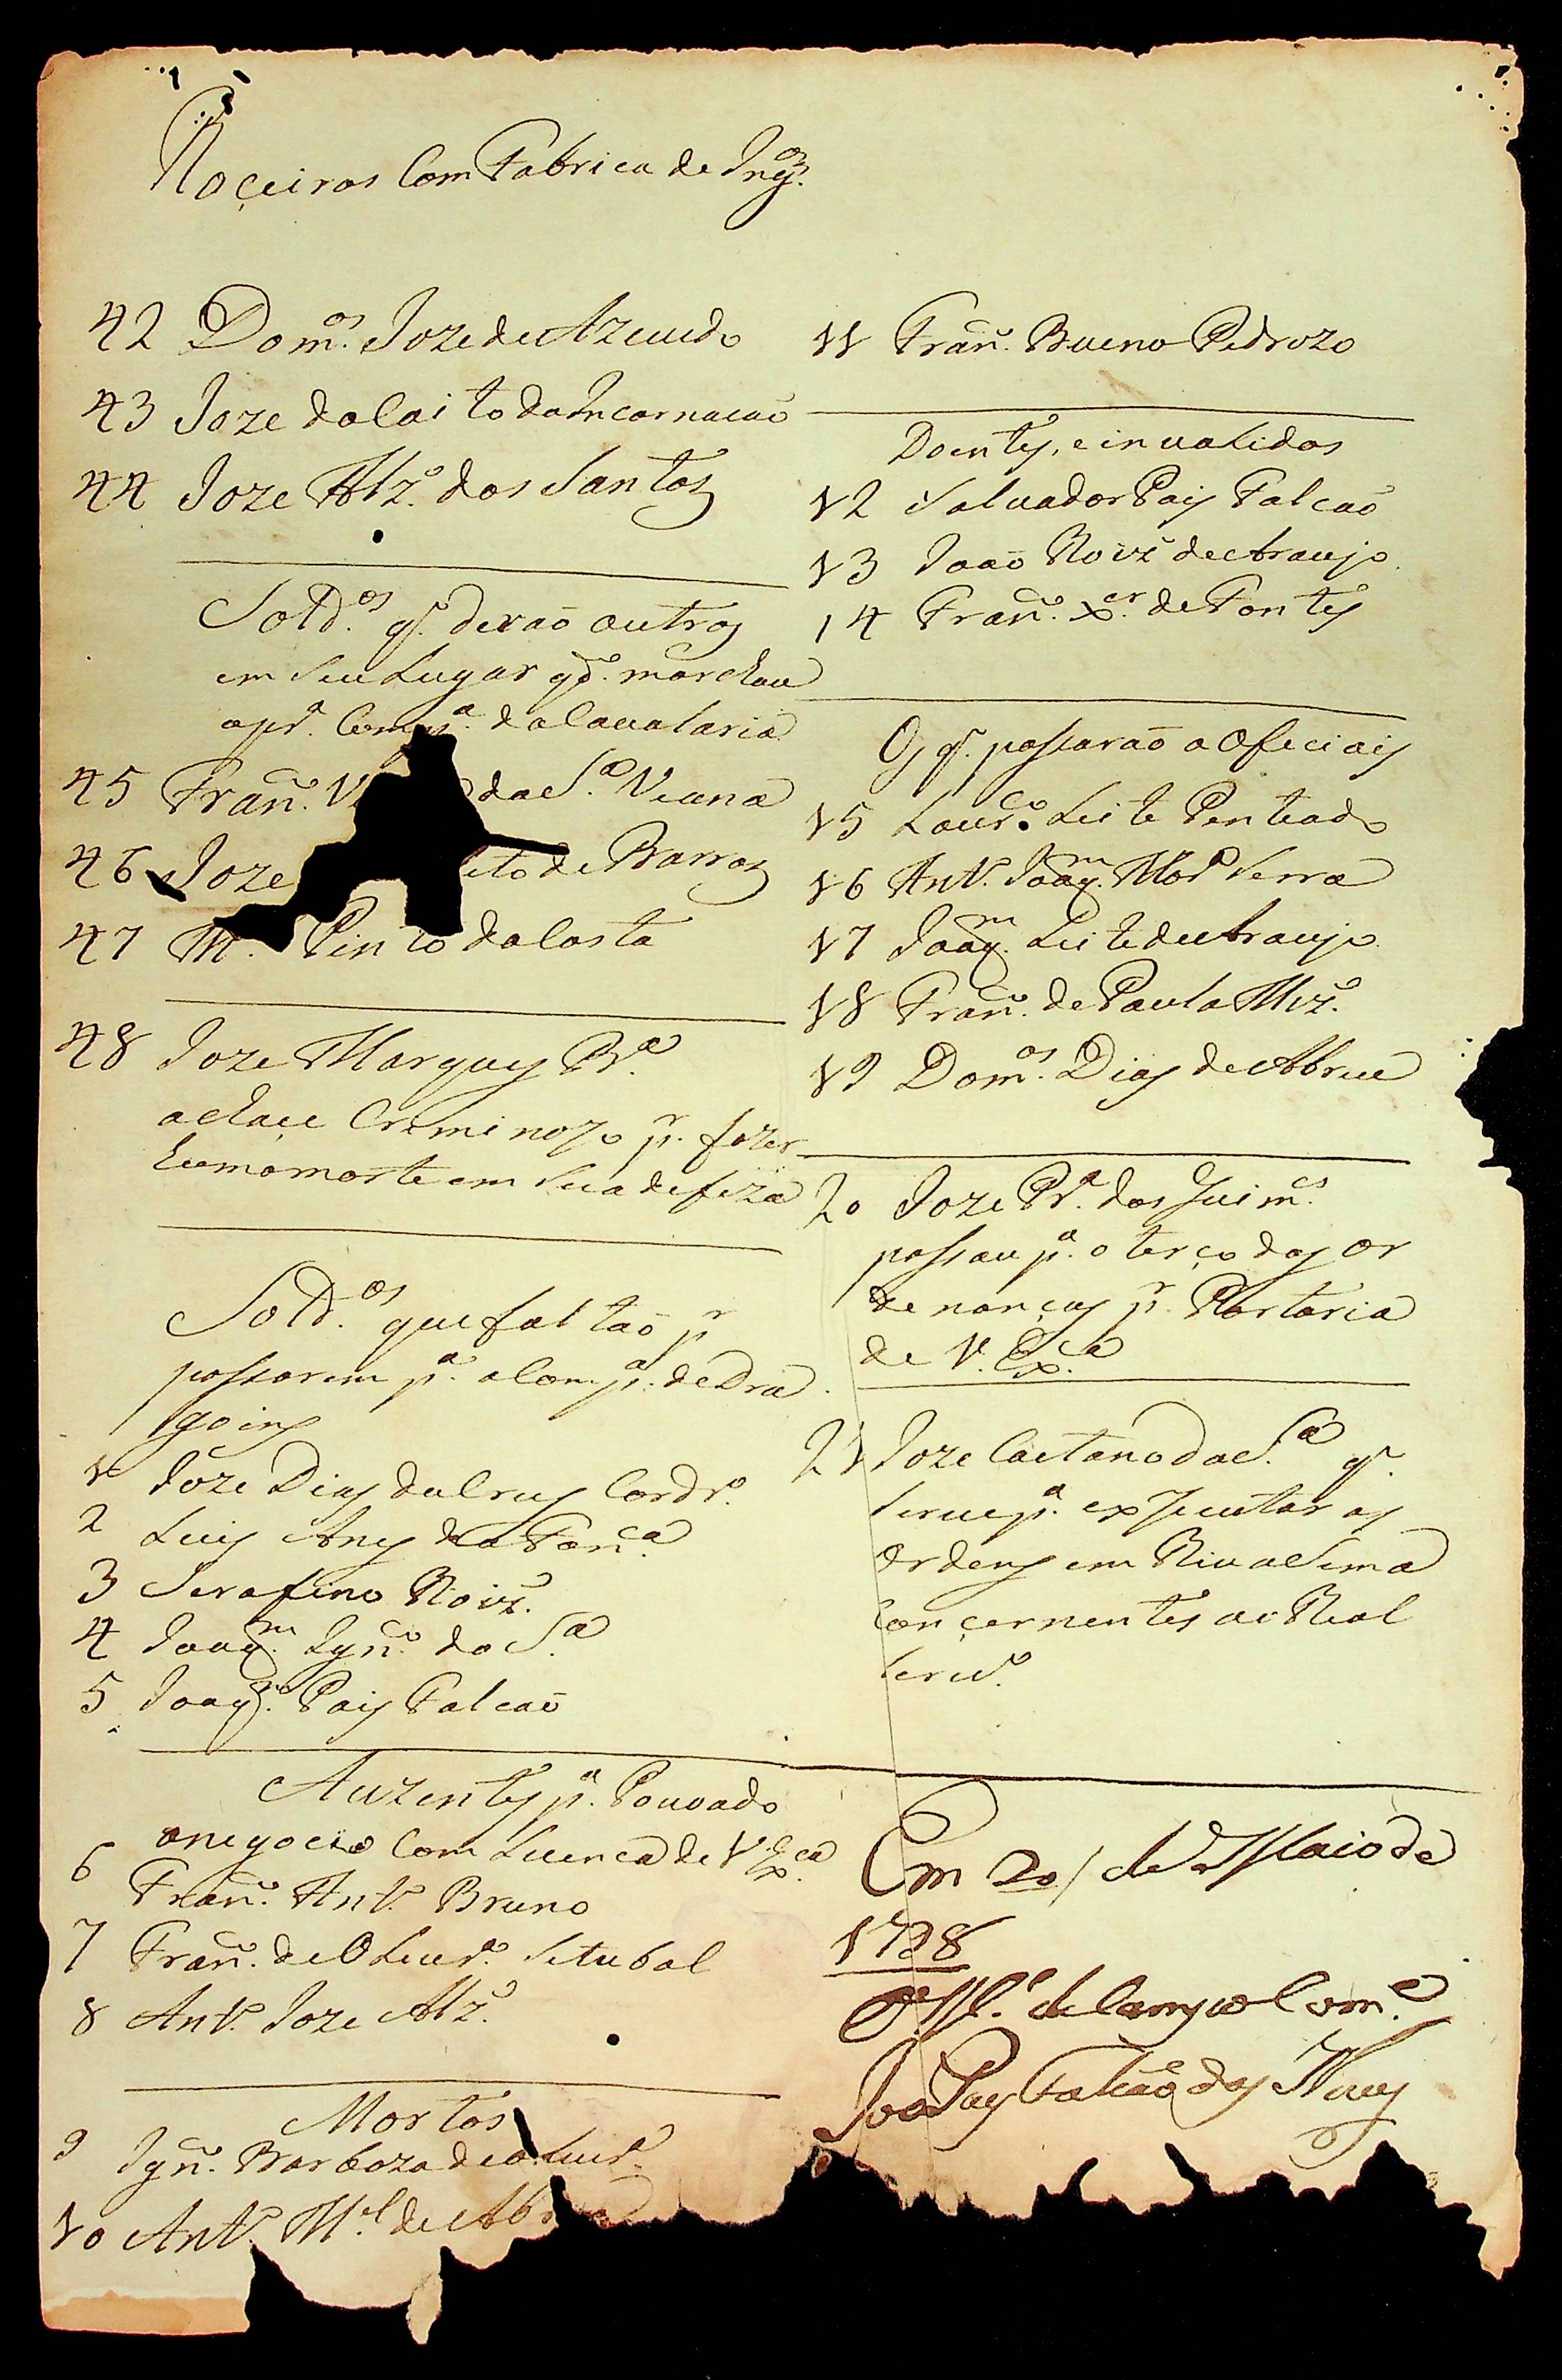 Roçeiros Com Fabrica de Ing.os
42 Dom.os Joze de Azeuedo
43 Joze da Caito da Incarnacaõ
44 Joze Alz.' dos Santos
Sold.os q'. deraõ outros
em Seu Lugar qd.o marchou
apr.a Comp.a da Caualaria
45 Fran.co V da S.a Viana
46 Joze eto de Barros
47 M. Pinto da Costa
48 Joze Marques Pr.a
achace Criminozo p.r fazer
huma morte em Sua defeza
Sold.os que faltaõ p.r
passarem p.a a Comp.a de Dra
goins
1 Joze Dias da Crus Cordr.o
2 Luis Anes da Fon.ca
3 Serafino Roiz.'
4 Joaq.m Ign.co da S.a
5 Joaq.m Pais Falcaõ
Auzentes p.a Pouoado
a negocio Com Licenca de V. Ex.ca
6 Fran.co Ant.o Bruno
7 Fran.co de Oliuer.a Setubal
8 Ant.o Joze Alz.'
Mortos
9 Ign.co Barboza de Oliuer.a
10 Ant.o M.el de Abr
11 Fran.co Bueno Pedrozo
Doentes, e inualidos
12 Saluador Pais Falcaõ
13 Joaõ Roiz' de Araujo
14 Fran.co X.er de Fontes
Os q'. passaraõ a Oficiais
15 Lour.co Leite Penteado
16 Ant.o Joaq.m Mor.a Serra
17 Joaq.m Leite de Araujo
18 Fran.co de Paula Miz.'
19 Dom.os Dias de Abreu
20 Joze Pr.a dos Guim.es
passou p.a o terço das Or
denanças p.r Portaria
de V. Ex.ca
21 Joze Caetano da S.a q'.
Serue p.a exzecutar as
Ordens em Riva Sima
Conçernentes ao Real
Seru.o
Em 20 de Maio de
1798
O M.e de Campo Com.e
Joaõ Pais Falcaõ das Neues